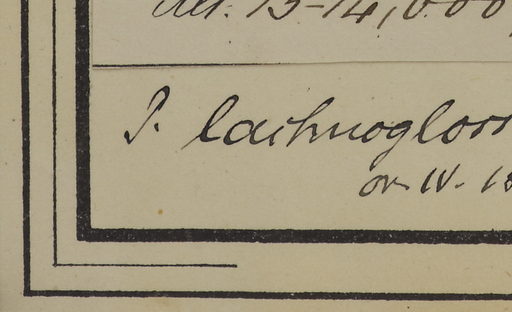 Alt. 13-14,000
P. lachnogloss
on IV. 18